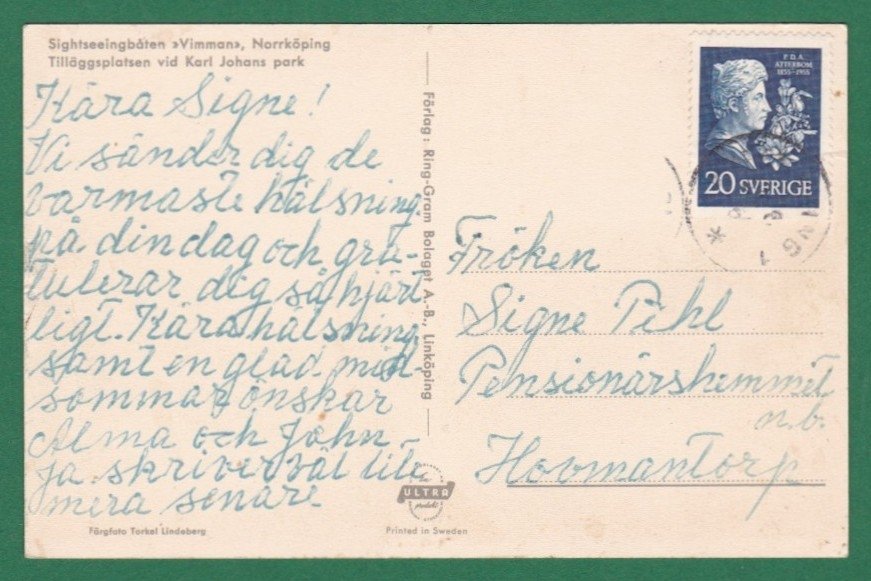 Sightseeingbåten »Vimman», Norrköping
Tilläggsplatsen vid Karl Johans park
Kära Signe!
Vi sänder dig de
varmaste hälsning.
på din dag och gra-
tulerar dig så hjärt
ligt. Kära hälsning.
samt en glad mid-
sommar önskar
Alma och John
ja skriver väl lite
mera senare
Färgfoto Torkel Lindeberg
Förlag: Ring-Gram Bolaget A.-B., Linköping
ULTRA
produkt
Printed in Sweden
P.D.A.
ATTERBOM
1855-1955
20 SVERIGE
Fröken
Signe Pihl
Pensionärshemmet
n.b.
Hovmantorp